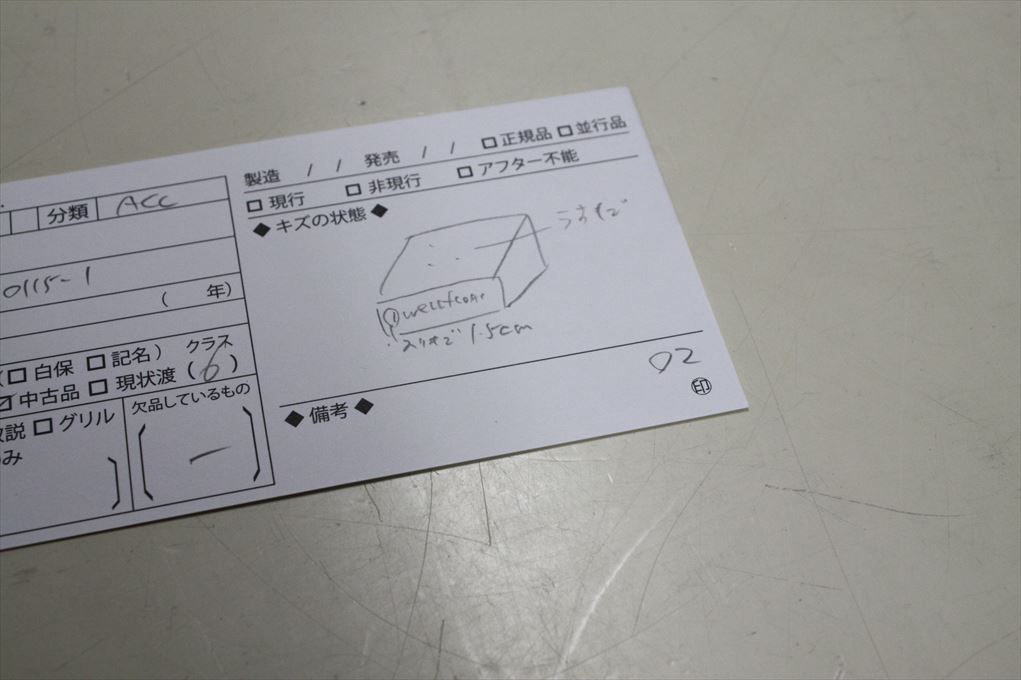 製造 / / 発売 / / □ 正規品 □ 並行品
□ 現行 □ 非現行 □ アフター不能
◆ キズの状態 ◆
うすキズ
1.5cm
02
印
◆ 備考 ◆
分類 ACC
0115-1
( 年)
(□ 白保 □ 記名) クラス
中古品 □ 現状渡 (6)
説 □ グリル
み
欠品しているもの
[ー]